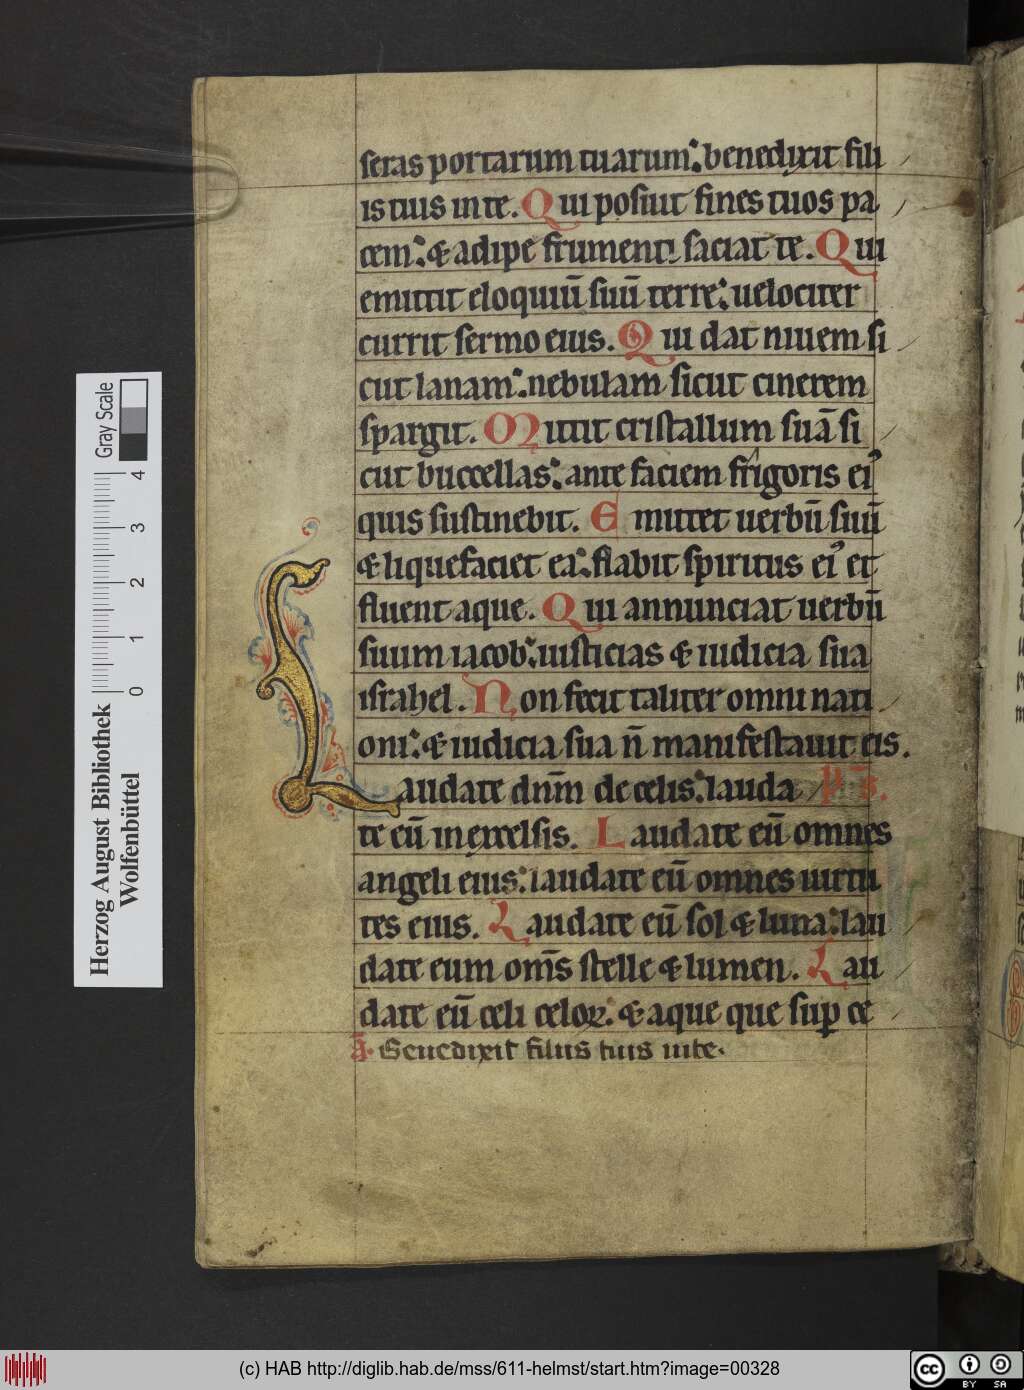 seras portarum tuarum: benedixit fili
is tuis in te. Qui posuit fines tuos pa
cem: & adipe frumenti saciat te. Qui
emittit eloquiū suū terre: uelociter
currit sermo eius. Qui dat niuem si
cut lanam: nebulam sicut cinerem
spargit. Mittit cristallum suā si
cut buccellas: ante faciem frigoris ei᾽
quis sustinebit. Emittet uerbū suū
& liquefaciet ea: flabit spiritus ei᾽ et
fluent aque. Qui annunciat uerbū
suum iacob: iusticias & iudicia sua
israhel. Non fecit taliter omni nati
oni: & iudicia sua n̄ manifestauit eis.
Laudate dn̄m de celis: lauda p̄s.
te eū in excelsis. Laudate eū omnes
angeli eius: laudate eū omnes uirtu
tes eius. Laudate eū sol & luna: lau
date eum om̄s stelle & lumen. Lau
date eū celi celoꝝ: & aque que sup̄ ce
ā. Benedixit filiis tuis in te.
Herzog August Bibliothek
Wolfenbüttel
0 1 2 3 4
Gray Scale
(c) HAB http://diglib.hab.de/mss/611-helmst/start.htm?image=00328
cc BY SA